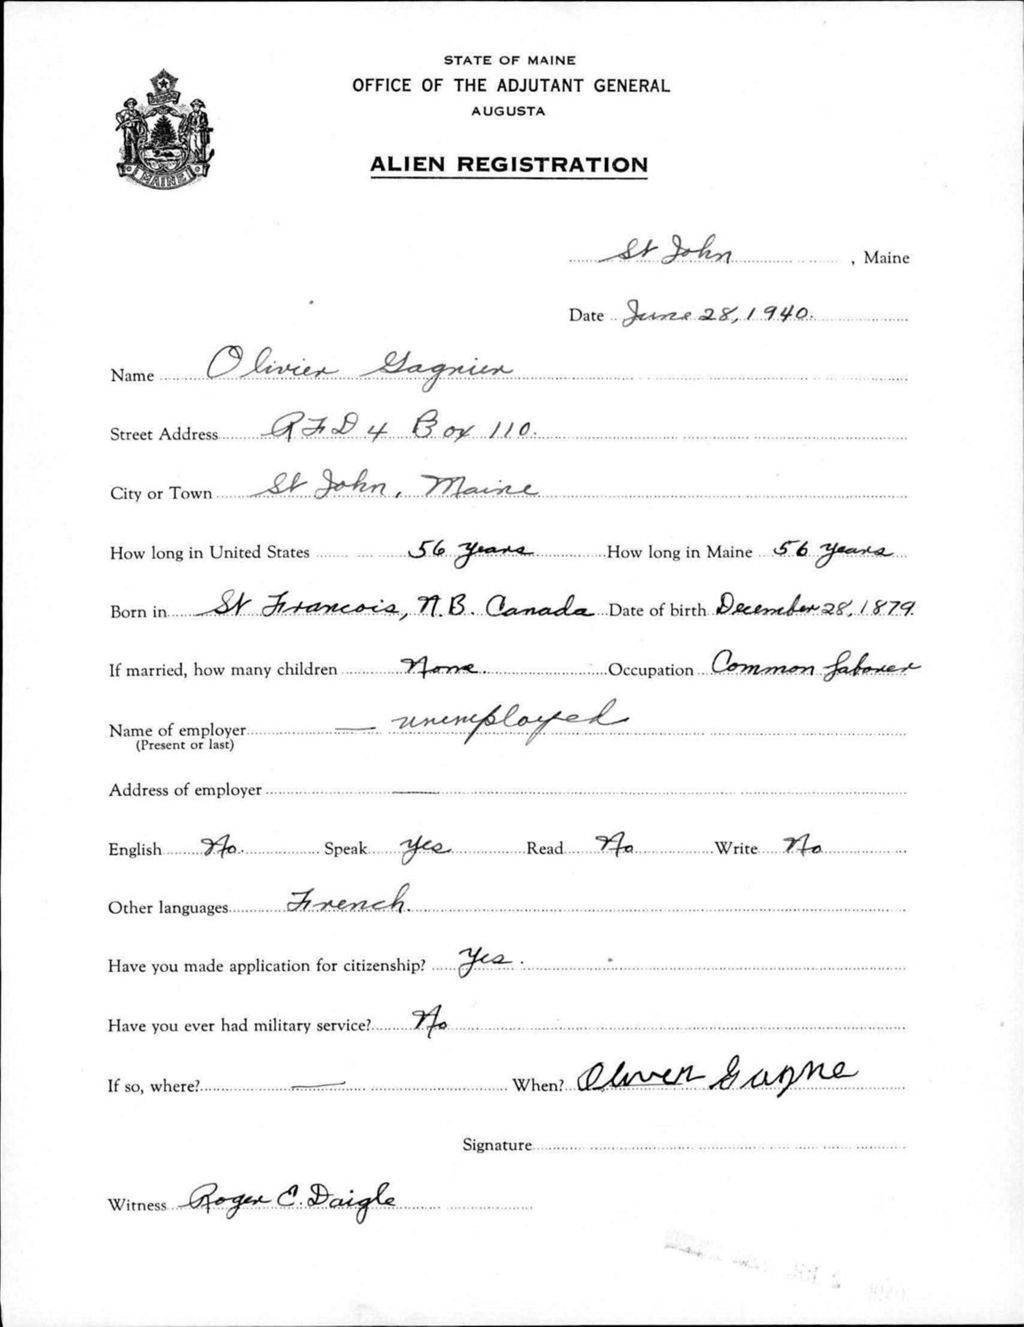 STATE OF MAINE
OFFICE OF THE ADJUTANT GENERAL
AUGUSTA
MAINE
ALIEN REGISTRATION
St John, Maine
Date June 28, 1940.
Name Olivier Gagnier
Street Address R F D 4 Box 110.
City or Town St John, Maine
How long in United States 56 years How long in Maine 56 years
Born in St Francois, N.B. Canada Date of birth December 28, 1879.
If married, how many children None. Occupation Common Laborer
Name of employer — unemployed
(Present or last)
Address of employer —
English No. Speak Yes Read No Write No
Other languages French.
Have you made application for citizenship? Yes.
Have you ever had military service? No
If so, where? — When? Oliver Gagne
Signature
Witness Roger E. Daigle